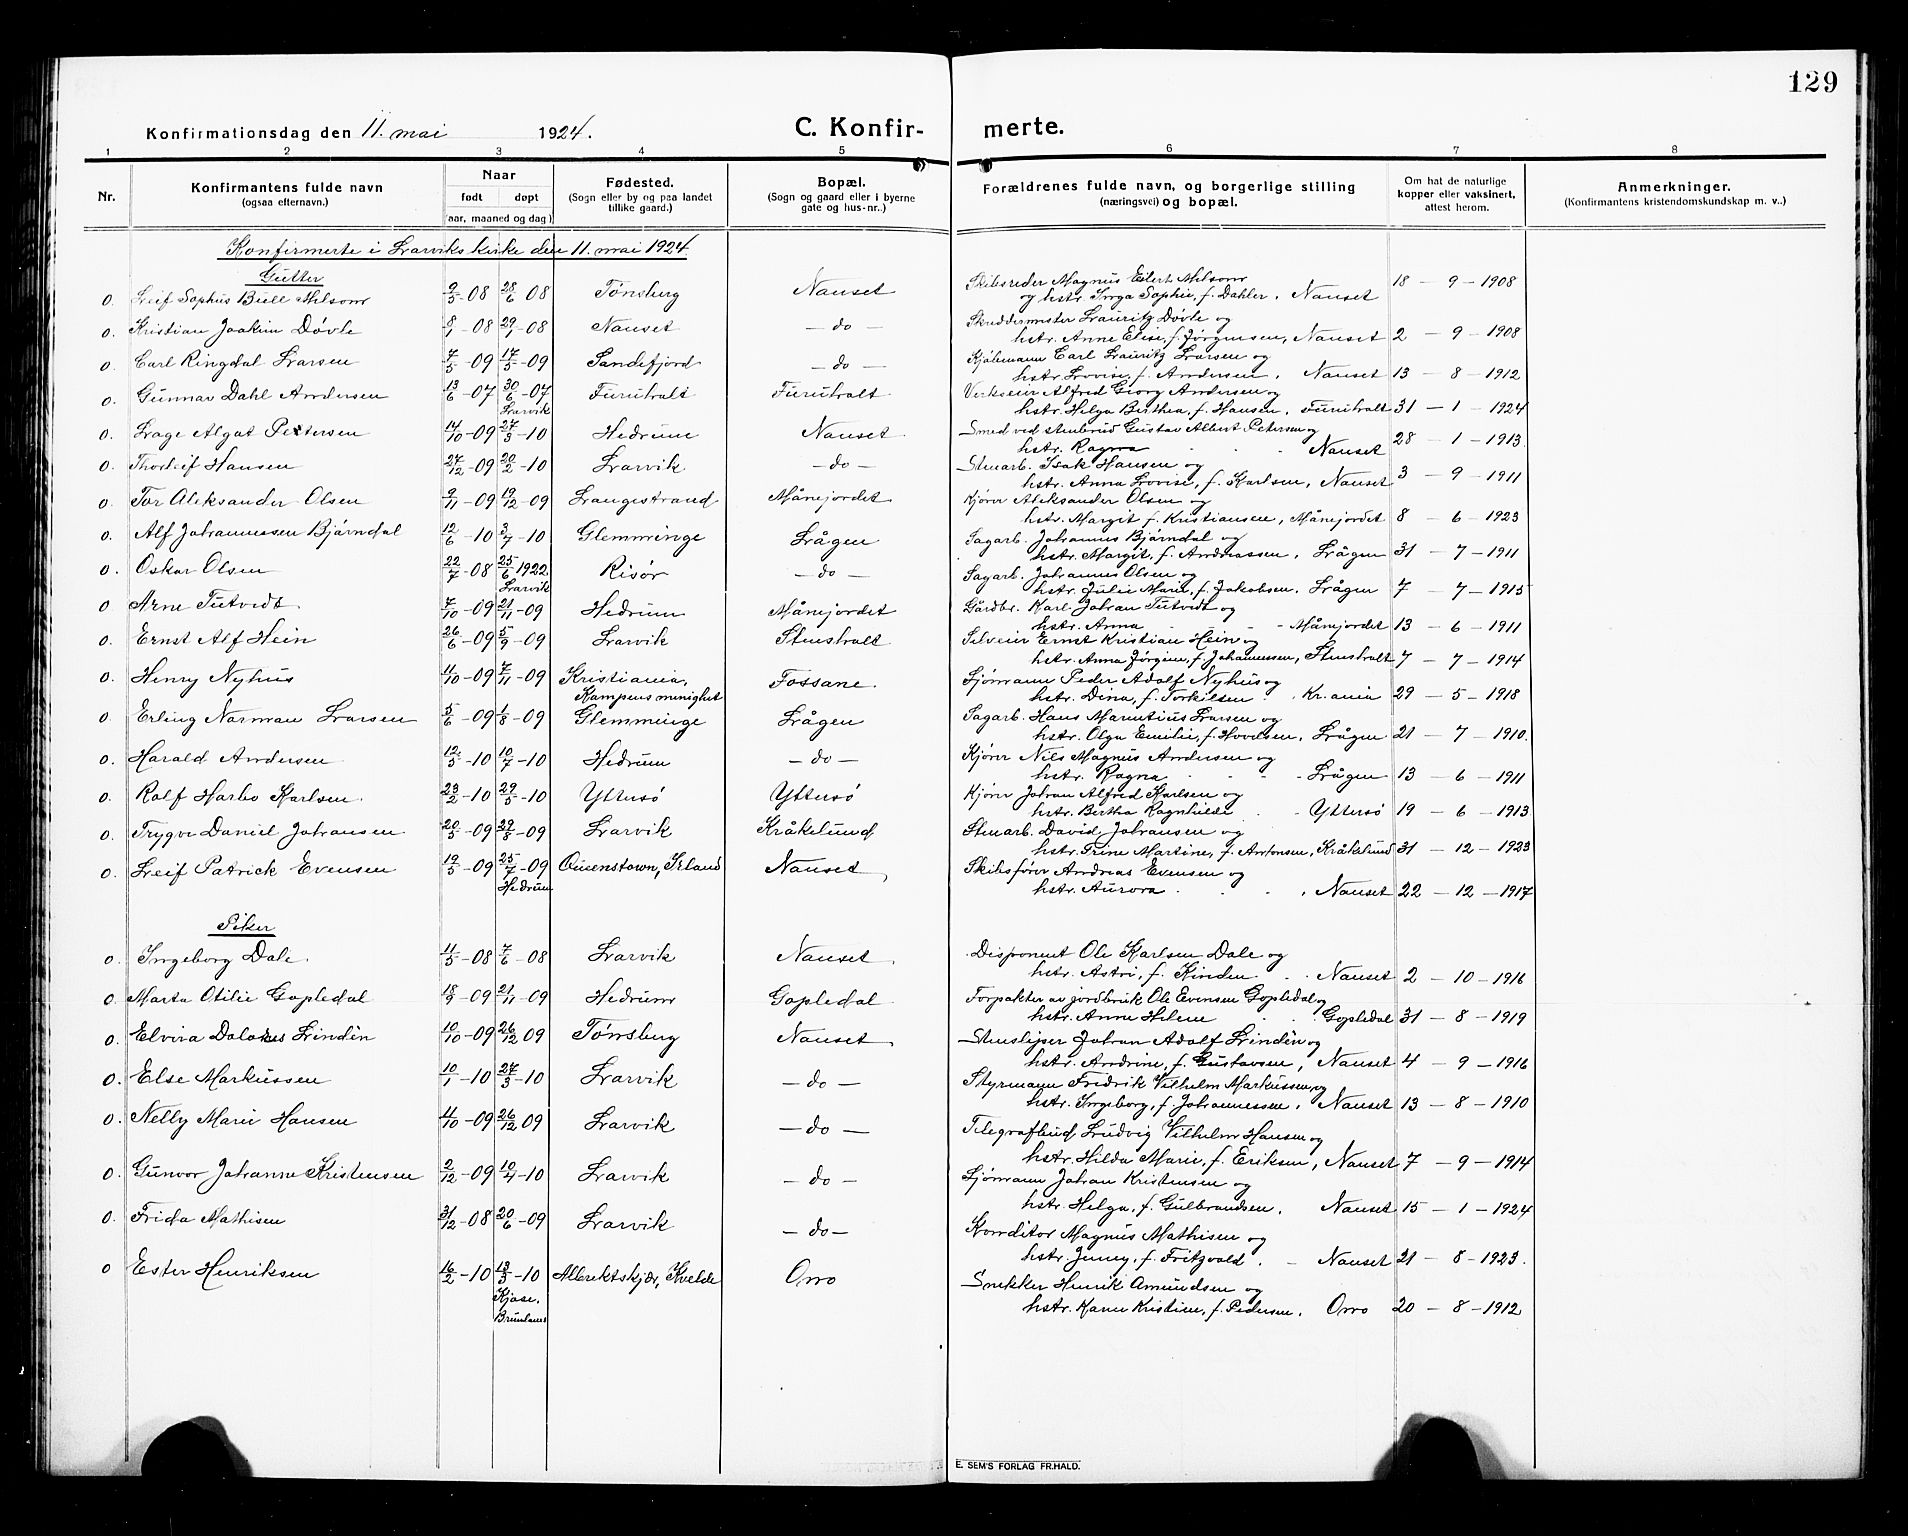 129
Konfirmationsdag den 11. mai 1924. C. Konfir- merte.
1 2 3 4 5 6 7 8
Nr. Konfirmantens fulde navn (ogsaa efternavn.) Naar født døpt (aar, maaned og dag) Fødested. (Sogn eller by og paa landet tillike gaard.) Bopæl. (Sogn og gaard eller i byerne gate og hus-nr.) Forældrenes fulde navn, og borgerlige stilling (næringsvei) og bopæl. Om hat de naturlige kopper eller vaksinert, attest herom. Anmerkninger. (Konfirmantens kristendomskundskap m. v..)
Konfirmerte i Larviks kirke den 11. mai 1924
Gutter
o. Leif Sophus Buell Melsom 9/5-08 28/6 08 Tønsberg Nanset Skibsreder Magnus Eilert Melsom
og hstr. Inga Sophie, f. Dahler. Nanset 18 - 9 - 1908
o. Kristian Joakim Døvle 8/1-08 29/1-08 Nanset - do - Skreddermester Lauritz Døvle og
hstr. Anne Elise, f. Jørgensen, Nanset 2 - 9 - 1908
o. Carl Ringdal Larsen 7/5-09 17/5-09 Sandefjord - do - Kjøbmann Carl Lauritz Larsen og
hstr. Lovise, f. Andersen. Nanset 13 - 8 - 1912
o. Gunnar Dahl Andersen 13/6-07 30/6-07 Larvik Furuholt Furuholt Verkseier Alfred Georg Andersen og
hstr. Helga Berthea, f. Hansen. Furuholt 31 - 1 - 1924
o. Lage Algot Pettersen 14/10-09 27/3-10 Hedrum Nanset Smed ved stenbrud Gustav Albert Petersen og
hstr. Ragna Nanset 28 - 1 - 1913.
o. Thorleif Hansen 27/12-09 20/2-10 Larvik - do - Stenarb. Isak Hansen og
hstr. Anna Lovise, f. Karlsen, Nanset 3 - 9 - 1911
o. Tor Aleksander Olsen 9/11-09 19/12-09 Langestrand Månejordet Kjører Aleksander Olsen og
hstr. Margit f. Kristiansen, Månejordet 8 - 6 - 1923
o. Alf Johannessen Bjørndal 12/6-10 3/7-10 Glemminge Lågen Sagarb. Johannes Bjørndal og
hstr. Margit, f. Andreassen. Lågen 31 - 7 - 1911
o. Oskar Olsen 22/7-08 25/6 1922. Larvik Risør - do - Sagarb. Johannes Olsen og
hstr. Julie Marie, f. Jakobsen. Lågen 7 - 7 - 1915
o. Arne Tutvedt 7/10-09 21/11-09 Hedrum Månejordet Gårdbr. Karl Johan Tutvedt og
hstr. Anna - Månejordet 13 - 6 - 1911
o. Ernst Alf Hein 26/6-09 5/9-09 Larvik Stensholt Selveier Ernst Kristian Hein og
hstr. Anna Jørgine, f. Johannessen, Stensholt 7 - 7 - 1914
o. Henry Nyhus 4/10-09 7/11-09 Kristiania, Kampens menighet Fossane. Sjømann Peder Adolf Nyhus og
hstr. Dina, f. Torkilsen Kr.ania 29 - 5 - 1918
o. Erling Norman Larsen 5/6-09 1/8-09 Glemminge Lågen Sagarb. Hans Marentius Larsen og
hstr. Olga Emilie, f. Hovelsen, Lågen 21 - 7 - 1910.
o. Harald Andersen 12/5-10 10/7-10 Hedrum - do - Kjører Nils Magnus Andersen og
hstr. Ragna - Lågen 13 - 6 - 1911
o. Rolf Harbo Karlsen. 23/2-10 29/5-10 Yttersø Yttersø Kjører Johan Alfred Karlsen og
hstr. Bertha Ragnhilde Yttersø 19 - 6 - 1913
o. Trygve Daniel Johansen 20/5-09 29/8-09 Larvik Kråkelund Stenarb. David Johansen og
hstr. Trine Martine, f. Antonsen, Kråkelund 31 - 12 - 1923
o. Leif Patrick Evensen 19/5-09 25/7-09 Hedrum Queenstown, Irland Nanset Skibsfører Andreas Evensen og
hstr. Aurora Nanset 22 - 12 - 1917
Piker
o. Ingeborg Dale. 11/5-08 7/6-08 Larvik Nanset. Disponent Ole Karlsen Dale og
hstr. Astri, f. Kinden Nanset 2 - 10 - 1916
o. Marta Otilie Gopledal 18/9-09 21/11-09 Hedrum Gopledal Forpakter av jordbruk Ole Evensen Gopledal og
hstr. Anne Helene Gopledal 31 - 8 - 1919
o. Elvira Dolores Lindén 10/10-09 26/12 09 Tønsberg Nanset. Stensliper Johan Adolf Lindén og
hstr. Andrine, f. Gustavsen, Nanset 4 - 9 - 1916
o. Else Markussen 10/1-10 27/3-10 Larvik - do - Styrmann Fredrik Vilhelm Markussen og
hstr. Ingeborg, f. Johannessen. Nanset 13 - 8 - 1910
o. Nelly Marie Hansen 4/10-09 26/12 09 Larvik - do - Telegrafbud Ludvig Vilhelm Hansen og
hstr. Hilda Marie, f. Eriksen, Nanset 7 - 9 - 1914
o. Gunvor Johanne Kristensen 2/12-09 10/4-10 Larvik - do - Sjømann Johan Kristensen og
hstr. Helga, f. Gulbrandsen. Nanset 15 - 1 - 1924
o. Frida Mathisen 31/12-08 20/6-09 Larvik - do - Konditor Magnus Mathisen og
hstr. Jenny, f. Fritzvold. - Nanset 21 - 8 - 1923.
o Ester Henriksen 16/2-10 13/3-10 Kjose, Brunlanes Albrektskjær, Kvelde Orro Snekker Henrik Amundsen og
hstr. Karen Kristine, f. Pedersen. Orro 20 - 8 - 1912
E. SEM'S FORLAG FR.HALD.